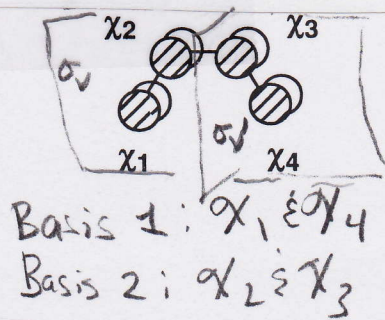 χ2 χ3
σv
σv'
χ1 χ4
Basis 1: χ1 & χ4
Basis 2: χ2 & χ3